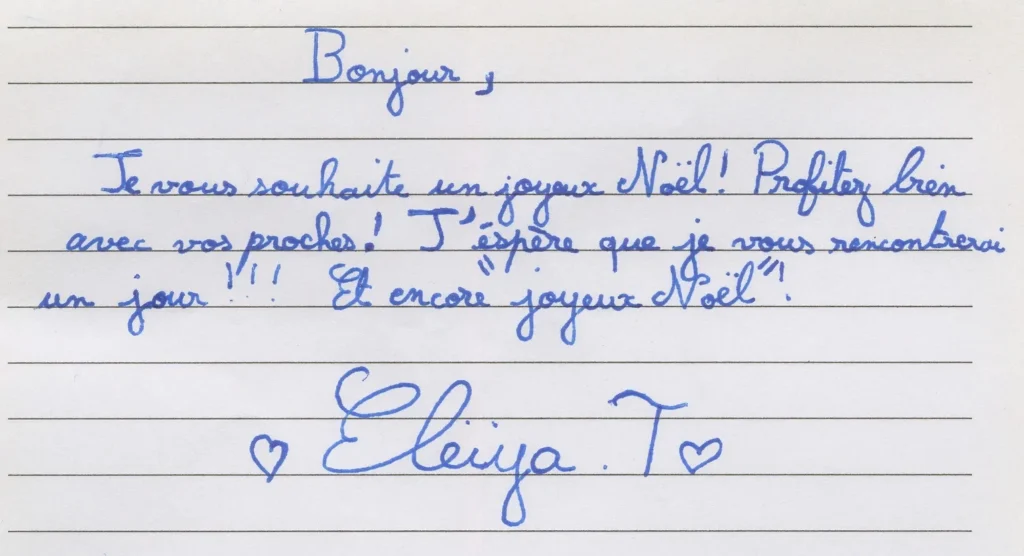 Bonjour,
Je vous souhaite un joyeux Noël! Profitez bien
avec vos proches! J'éspère que je vous rencontrerai
un jour!!! Et encore "joyeux Noël"!
♡ Eleiya.T ♡